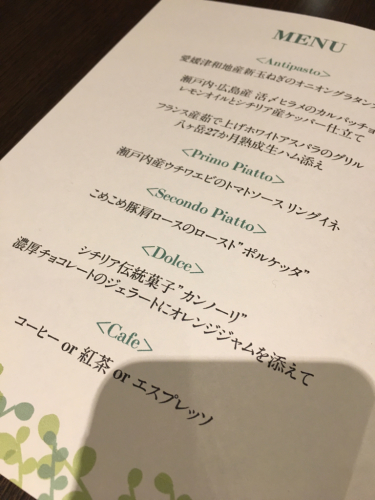 MENU
<Antipasto>
愛媛津和地産新玉ねぎのオニオングラタンス
瀬戸内・広島産 活〆ヒラメのカルパッチョ
レモンオイルとシチリア産ケッパー仕立て
フランス産茹で上げホワイトアスパラのグリル
八ヶ岳27か月熟成生ハム添え
<Primo Piatto>
瀬戸内産ウチワエビのトマトソース リングイネ
<Secondo Piatto>
こめこめ豚肩ロースのロースト"ポルケッタ"
<Dolce>
シチリア伝統菓子"カンノーリ"
濃厚チョコレートのジェラートにオレンジジャムを添えて
<Cafe>
コーヒー or 紅茶 or エスプレッソ